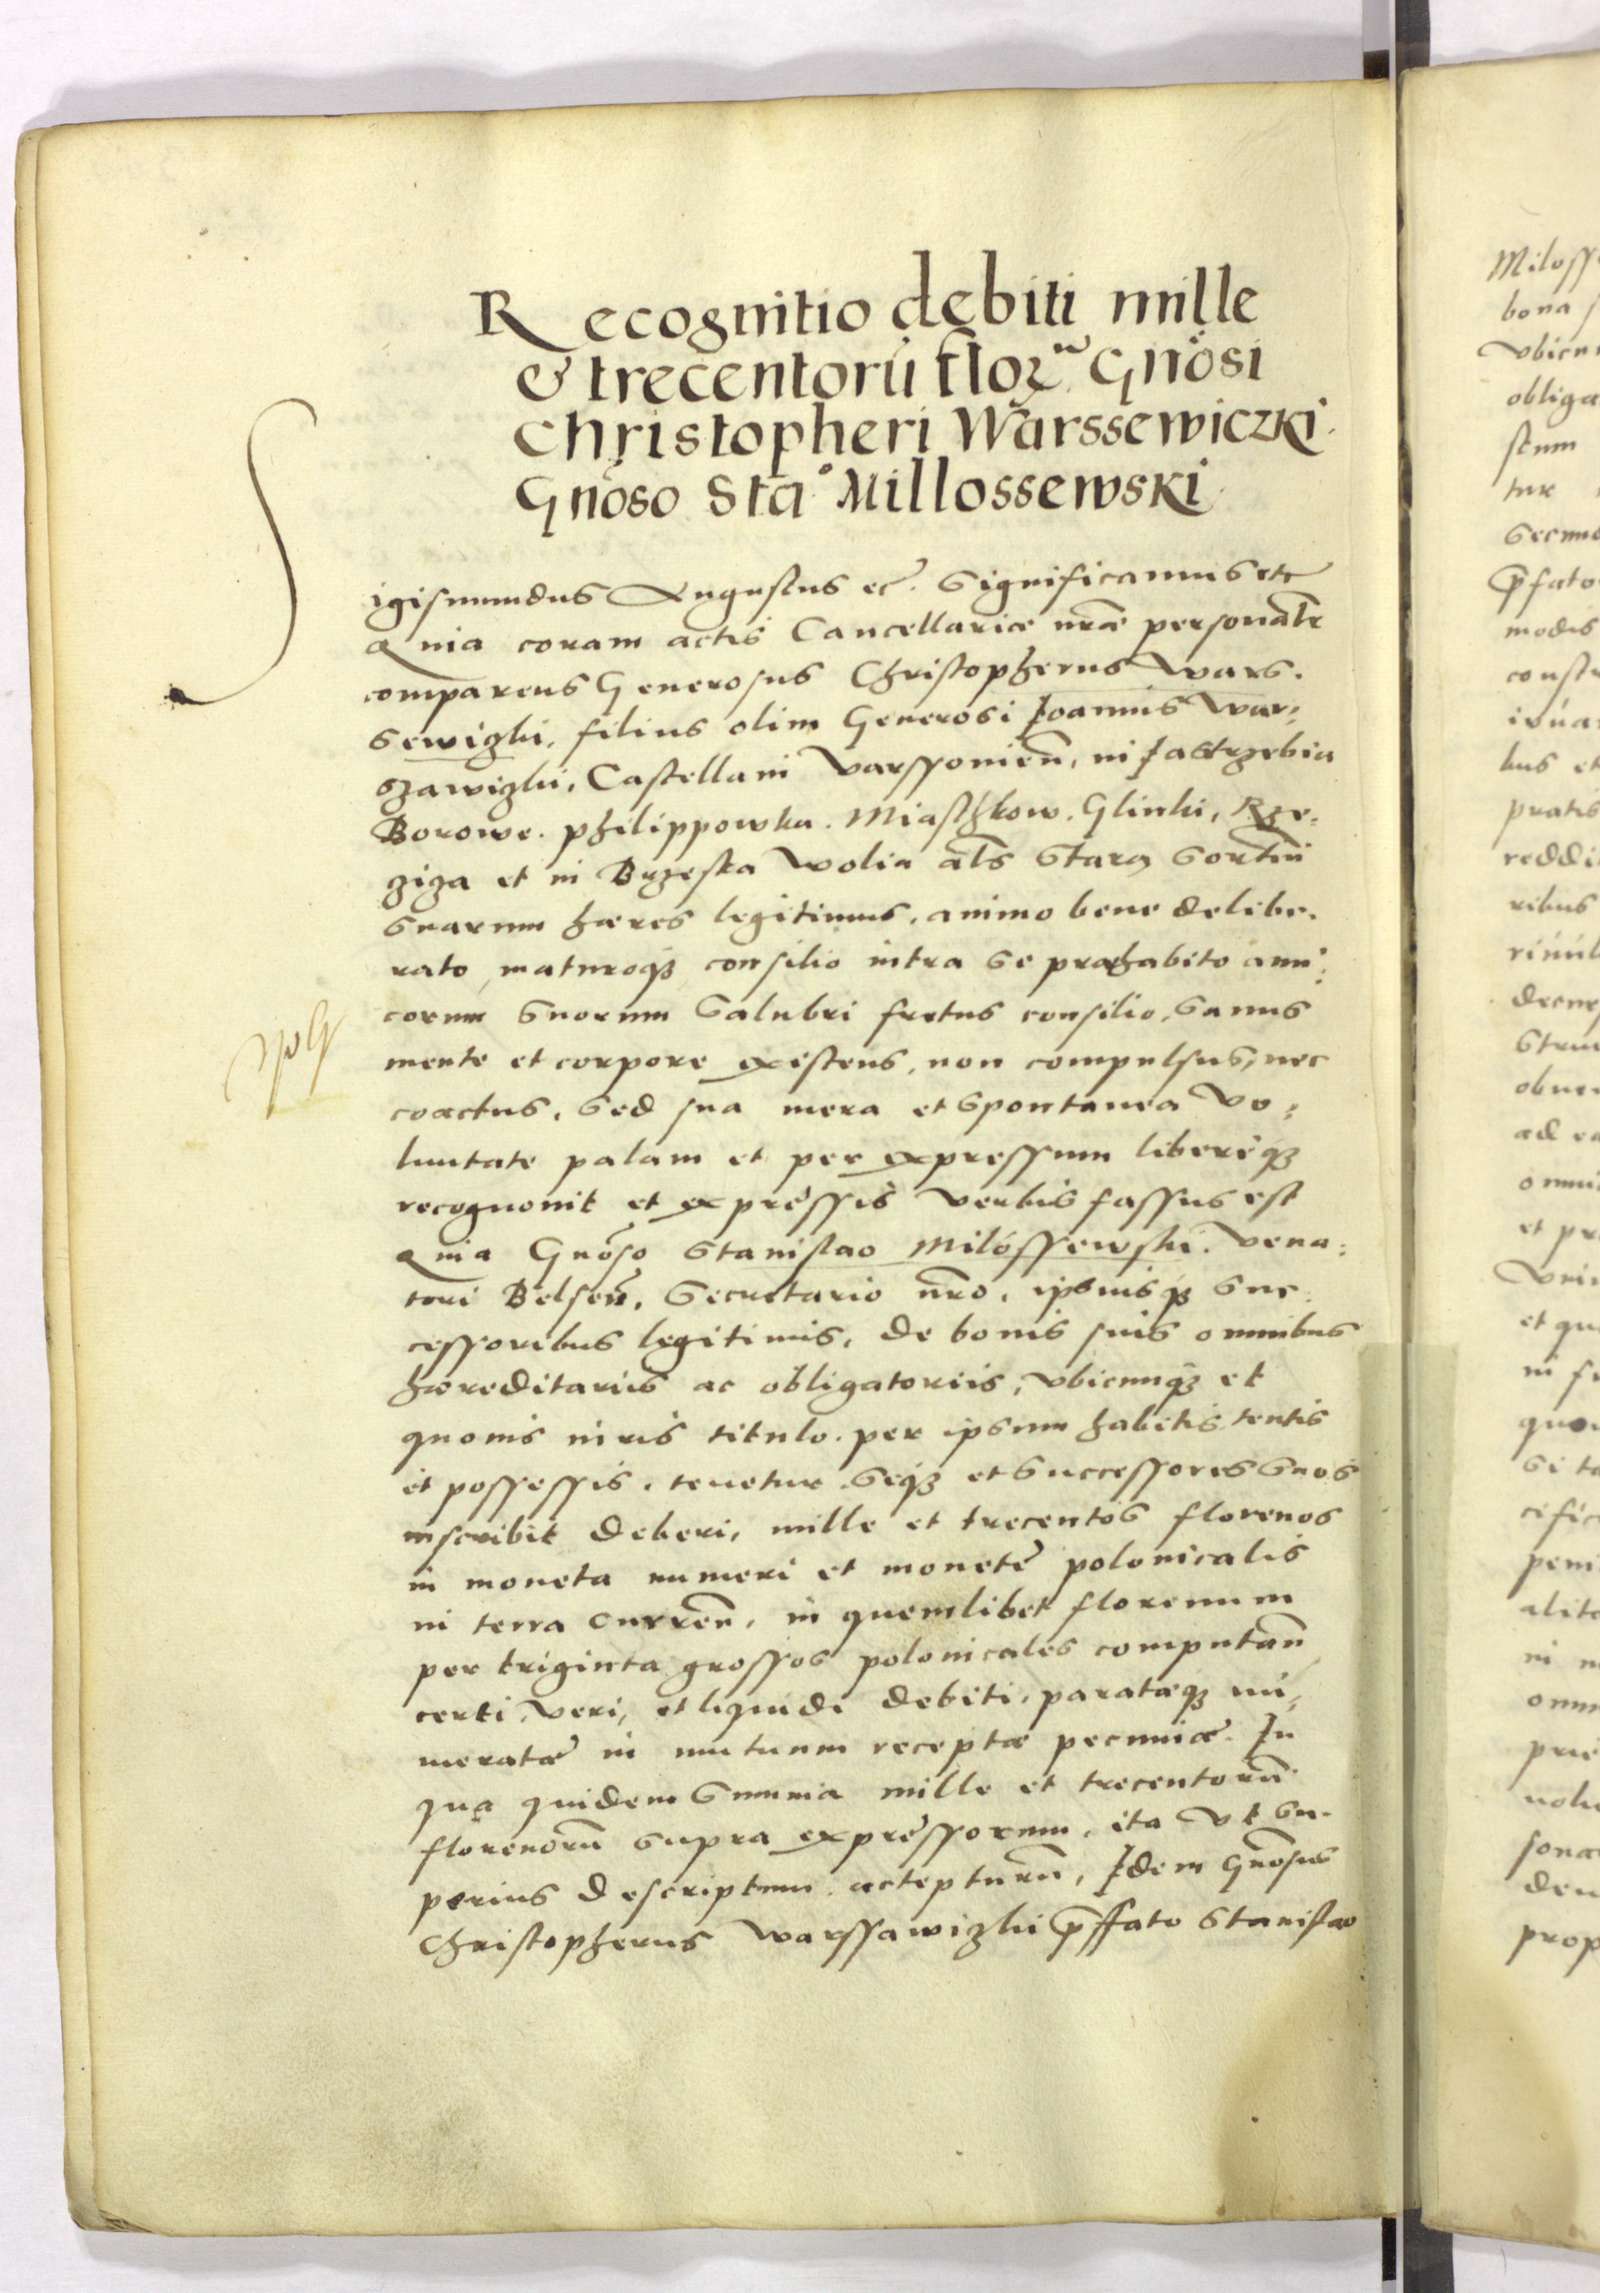 Recognitio debiti mille
& trecentorũ floꝝ̃ Gnõsi
Christopheri Warssewiczki
Gnõso Sta° Millossewski
Sigismundus Augustus eč. Significamus etc
Quia coram actis Cancellariæ nr̃æ personalr̃
comparens Generosus Christopherus Wars.
sewizki, filius olim Generosi Ioannis War,
szawizki, Castellani Varssovien̄, in Iastrzebia
Borowe. philippowka. Miastzkow. Glinki, Rze,
ziza et in Brzeska Wolia al̃s Stara sortiũ
suarum hæres legitimus, animo bene delibe,
rato, maturoqꝫ consilio intra se præhabito ami,
corum suorum salubri fretus consilio, sanus
mente et corpore existens, non compulsus, nec
coactus, sed sua mera et spontanea vo,
luntate palam et per expressum libereqꝫ
recognovit et expressis verbis fassus est
Quia Gnõso Stanislao Milossewski. Vena,
tori Belsen̄, Secretario nr̃o, ipsiusqꝫ suc,
cessoribus legitimis, de bonis suis omnibus
hæreditariis ac obligatoriis, vbicunqꝫ et
quovis iuris titulo. per ipsum habitis tentis
et possessis, tenetur seqꝫ et successores suos
inscribit deberi, mille et trecentos florenos
in moneta numeri et monetę polonicalis
in terra curren̄, in quemlibet florenum
per triginta grossos polonicales computan̄
certi, veri, et liquidi debiti, paratæqꝫ nu,
meratæ in mutuum receptæ pecuniæ. In
qua quidem summa mille et trecentorũ
florenorũ supra expressorum, ita vt su,
perius descriptum acceptorũ, Idem Gnõsus
Christopherus Warssawizki p̃ffato Stanislao
Miloss
bona
vbicun
obliga
tur
p̃fato
modis
constr
bus et
pratis
reddit
ribus
et pr
et qu
prop